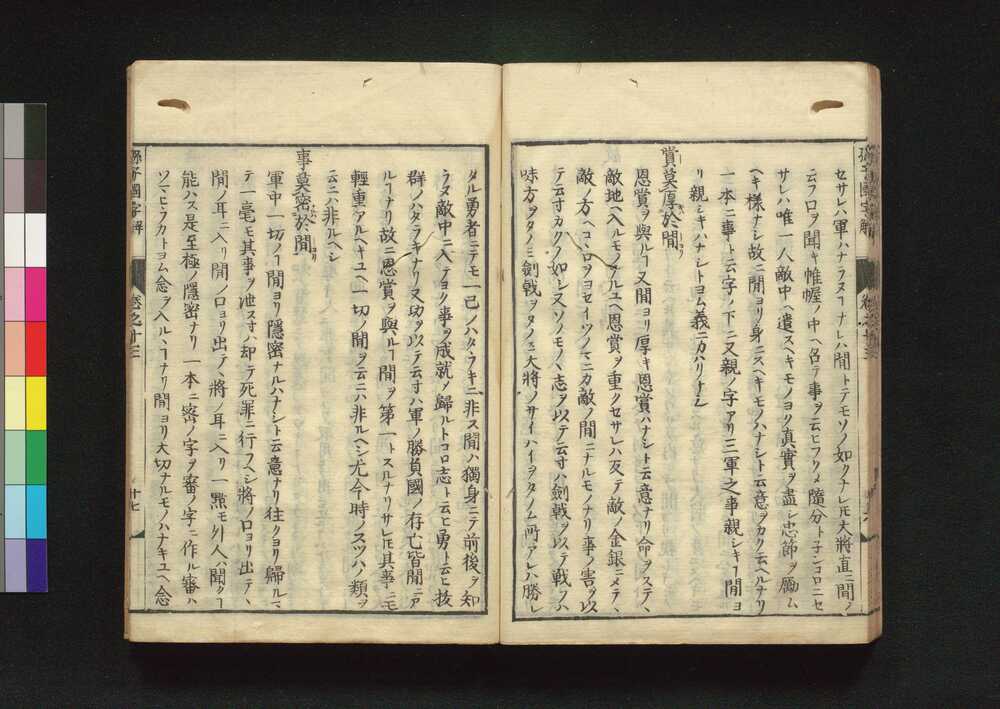 孫子國字解
セサレハ軍ハナラヌヿナレハ間トテモソノ如クナレ𪜈大將直ニ間ノ
云フ口ヲ聞キ帷幄ノ中ヘ召テ事ヲ云ヒフクメ隨分ト子ンコロニセ
サレハ唯一人敵中ヘ遣スヘキモノヨク真實ヲ盡シ忠節ヲ勵ム
ヘキ樣ナシ故ニ間ヨリ身ニスヘキモノハナシト云意ヲカク云ヘルナリ
一本ニ事ト云字ノ下ニ又親ノ字アリ三軍之事親シキヿ間ヨ
リ親シキハナシトヨム義ニカハリナシ
賞莫厚於間
恩賞ヲ與ルヿ又間ヨリ厚キ恩賞ハナシト云意ナリ命ヲステヽ
敵地ヘ入ルモノナルユヘ恩賞ヲ重クセサレハ反テ敵ノ金銀ニメテヽ
敵ノ方ヘコヽロヲヨセイツノマニカ敵ノ間ニナルモノナリ事ノ害ヲ以
テ云寸カクノ如シ又ソノモノヽ志ヲ以テ云寸ハ劍戟ヲ以テ戰フハ
味方ヲタノミ劍戟ヲタノミ大將ノサイハイヲタノム所アレハ勝レ
タル勇者ニテモ一己ノハタラキニ非ス間ハ獨身ニテ前後ヲ知
ラヌ敵中ニ入テヨク事ヲ成就〆歸ルトコロ志ト云ヒ勇ト云ヒ拔
群ノハタラキナリ又功ヲ以テ云寸ハ軍ノ勝負國ノ存亡皆間ニア
ルヿナリ故ニ恩賞ヲ與ルヿ間ヲ第一トスルナリサレ𪜈其事ニモ
輕重アルヘキユヘ一切ノ間ヲ云ニハ非ルヘシ尤今時ノスツハノ類ヲ
云ニハ非ルヘシ
事莫密於間
軍中一切ノヿ間ヨリ隱密ナルハナシト云意ナリ往クヨリ歸ルマ
テ一毫モ其事ヲ泄ス寸ハ却テ死罪ニ行フヘシ將ノ口ヨリ出テヽ
間ノ耳ニ入リ間ノ口ヨリ出テヽ將ノ耳ニ入リ一點モ外人ハ聞クヿ
能ハス是至極ノ隱密ナリ一本ニ密ノ字ヲ審ノ字ニ作ル審ハ
ツマヒラカトヨム念ヲ入ルヽヿナリ間ヨリ大切ナルモノハナキユヘ念
孫子國字解
卷之十三
十七